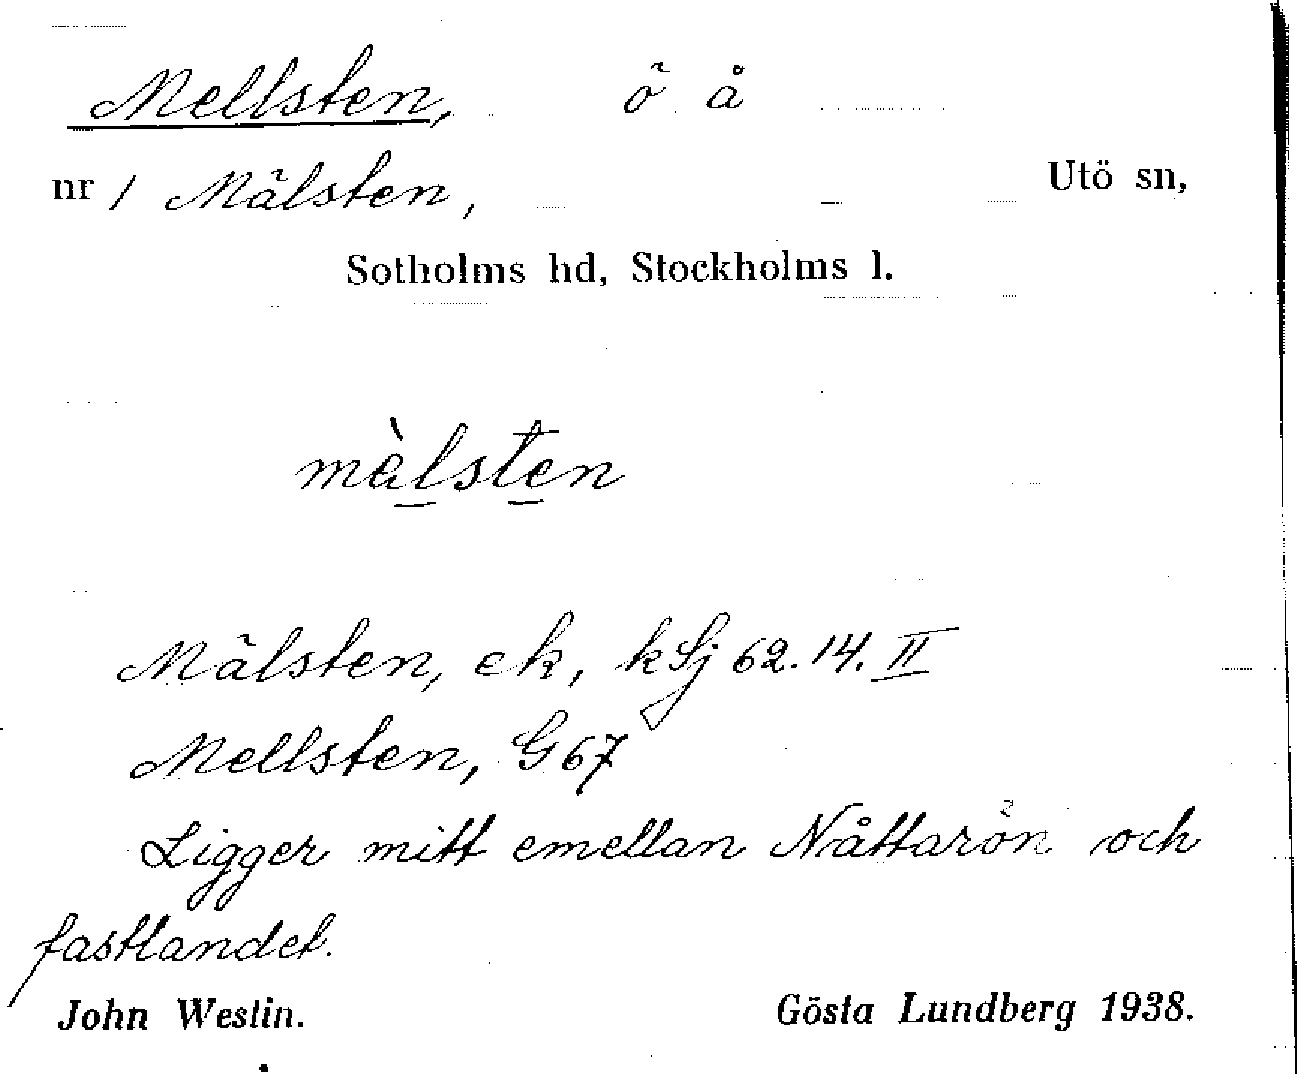 Mellsten, ö å
nr 1 Mälsten, Utö sn,
Sotholms hd, Stockholms l.
màlsten
Mälsten, ek, kSj 62.14.II
Mellsten, G67
Ligger mitt emellan Nåttarön och
fastlandet.
John Westin. Gösta Lundberg 1938.